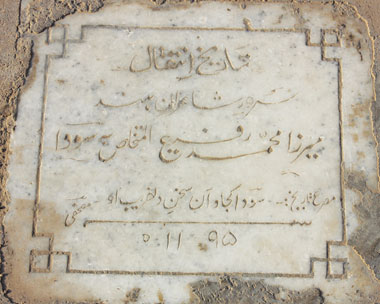 تاریخ انتقال
سرور شاعران ہند
میرزا محمد رفیع المتخلص بہ سودا
مصرع تاریخ :- سودا کجا و آن سخنِ دلفریب او مصحفی
۱۱۹۵ ه